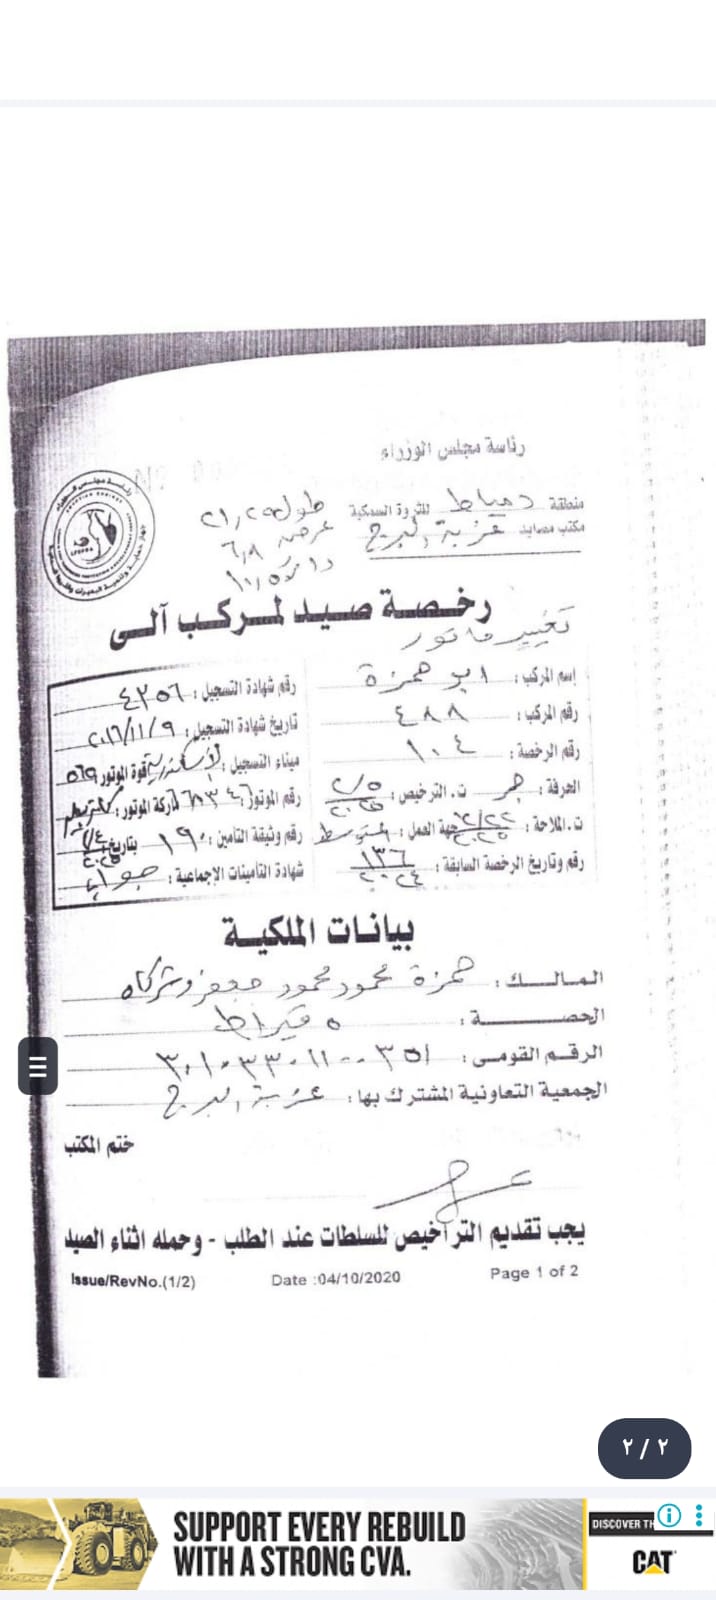 رئاسة مجلس الوزراء
منطقة دمياط للثروة السمكية
مكتب مصايد عزبة البرج
طول ٢١,٢٥
عرض ٦,٨
رخـصـة صـيـد لمـركـب آلـى
تغيير ماتور
إسم المركب : ابو حمزة
رقم المركب : ٤٨٨
رقم الرخصة : ١٠٤
الحرفة : جر ت. الترخيص : ٢/٥ ٢٠٢٥
ت. الملاحة : ٢/٢٢ ٢٠٢٥ جهة العمل : المتوسط
رقم وتاريخ الرخصة السابقة : ١٣٦ ٢٠٢٤
رقم شهادة التسجيل : ٤٢٥٦
تاريخ شهادة التسجيل : ٢٠١٦/١١/٩
ميناء التسجيل : الأسكندرية قوة الموتور ٥٦٩
رقم الموتور : ماركة الموتور :
رقم وثيقة التأمين : ١٩٠ بتاريخ ٢٠٢٥
شهادة التأمينات الإجتماعية :
بيانات الملكيـة
المـالـــك : حمزة محمود محمود جعفر وشركاه
الحصـــــــة : ٥ قيراط
الرقـم القومـى :
الجمعية التعاونية المشترك بها : عزبة البرج
ختم المكتب
يجب تقديم التراخيص للسلطات عند الطلب - وحمله اثناء الصيد
Issue/RevNo.(1/2) Date :04/10/2020 Page 1 of 2
٢ / ٢
SUPPORT EVERY REBUILD
WITH A STRONG CVA.
DISCOVER TH
CAT